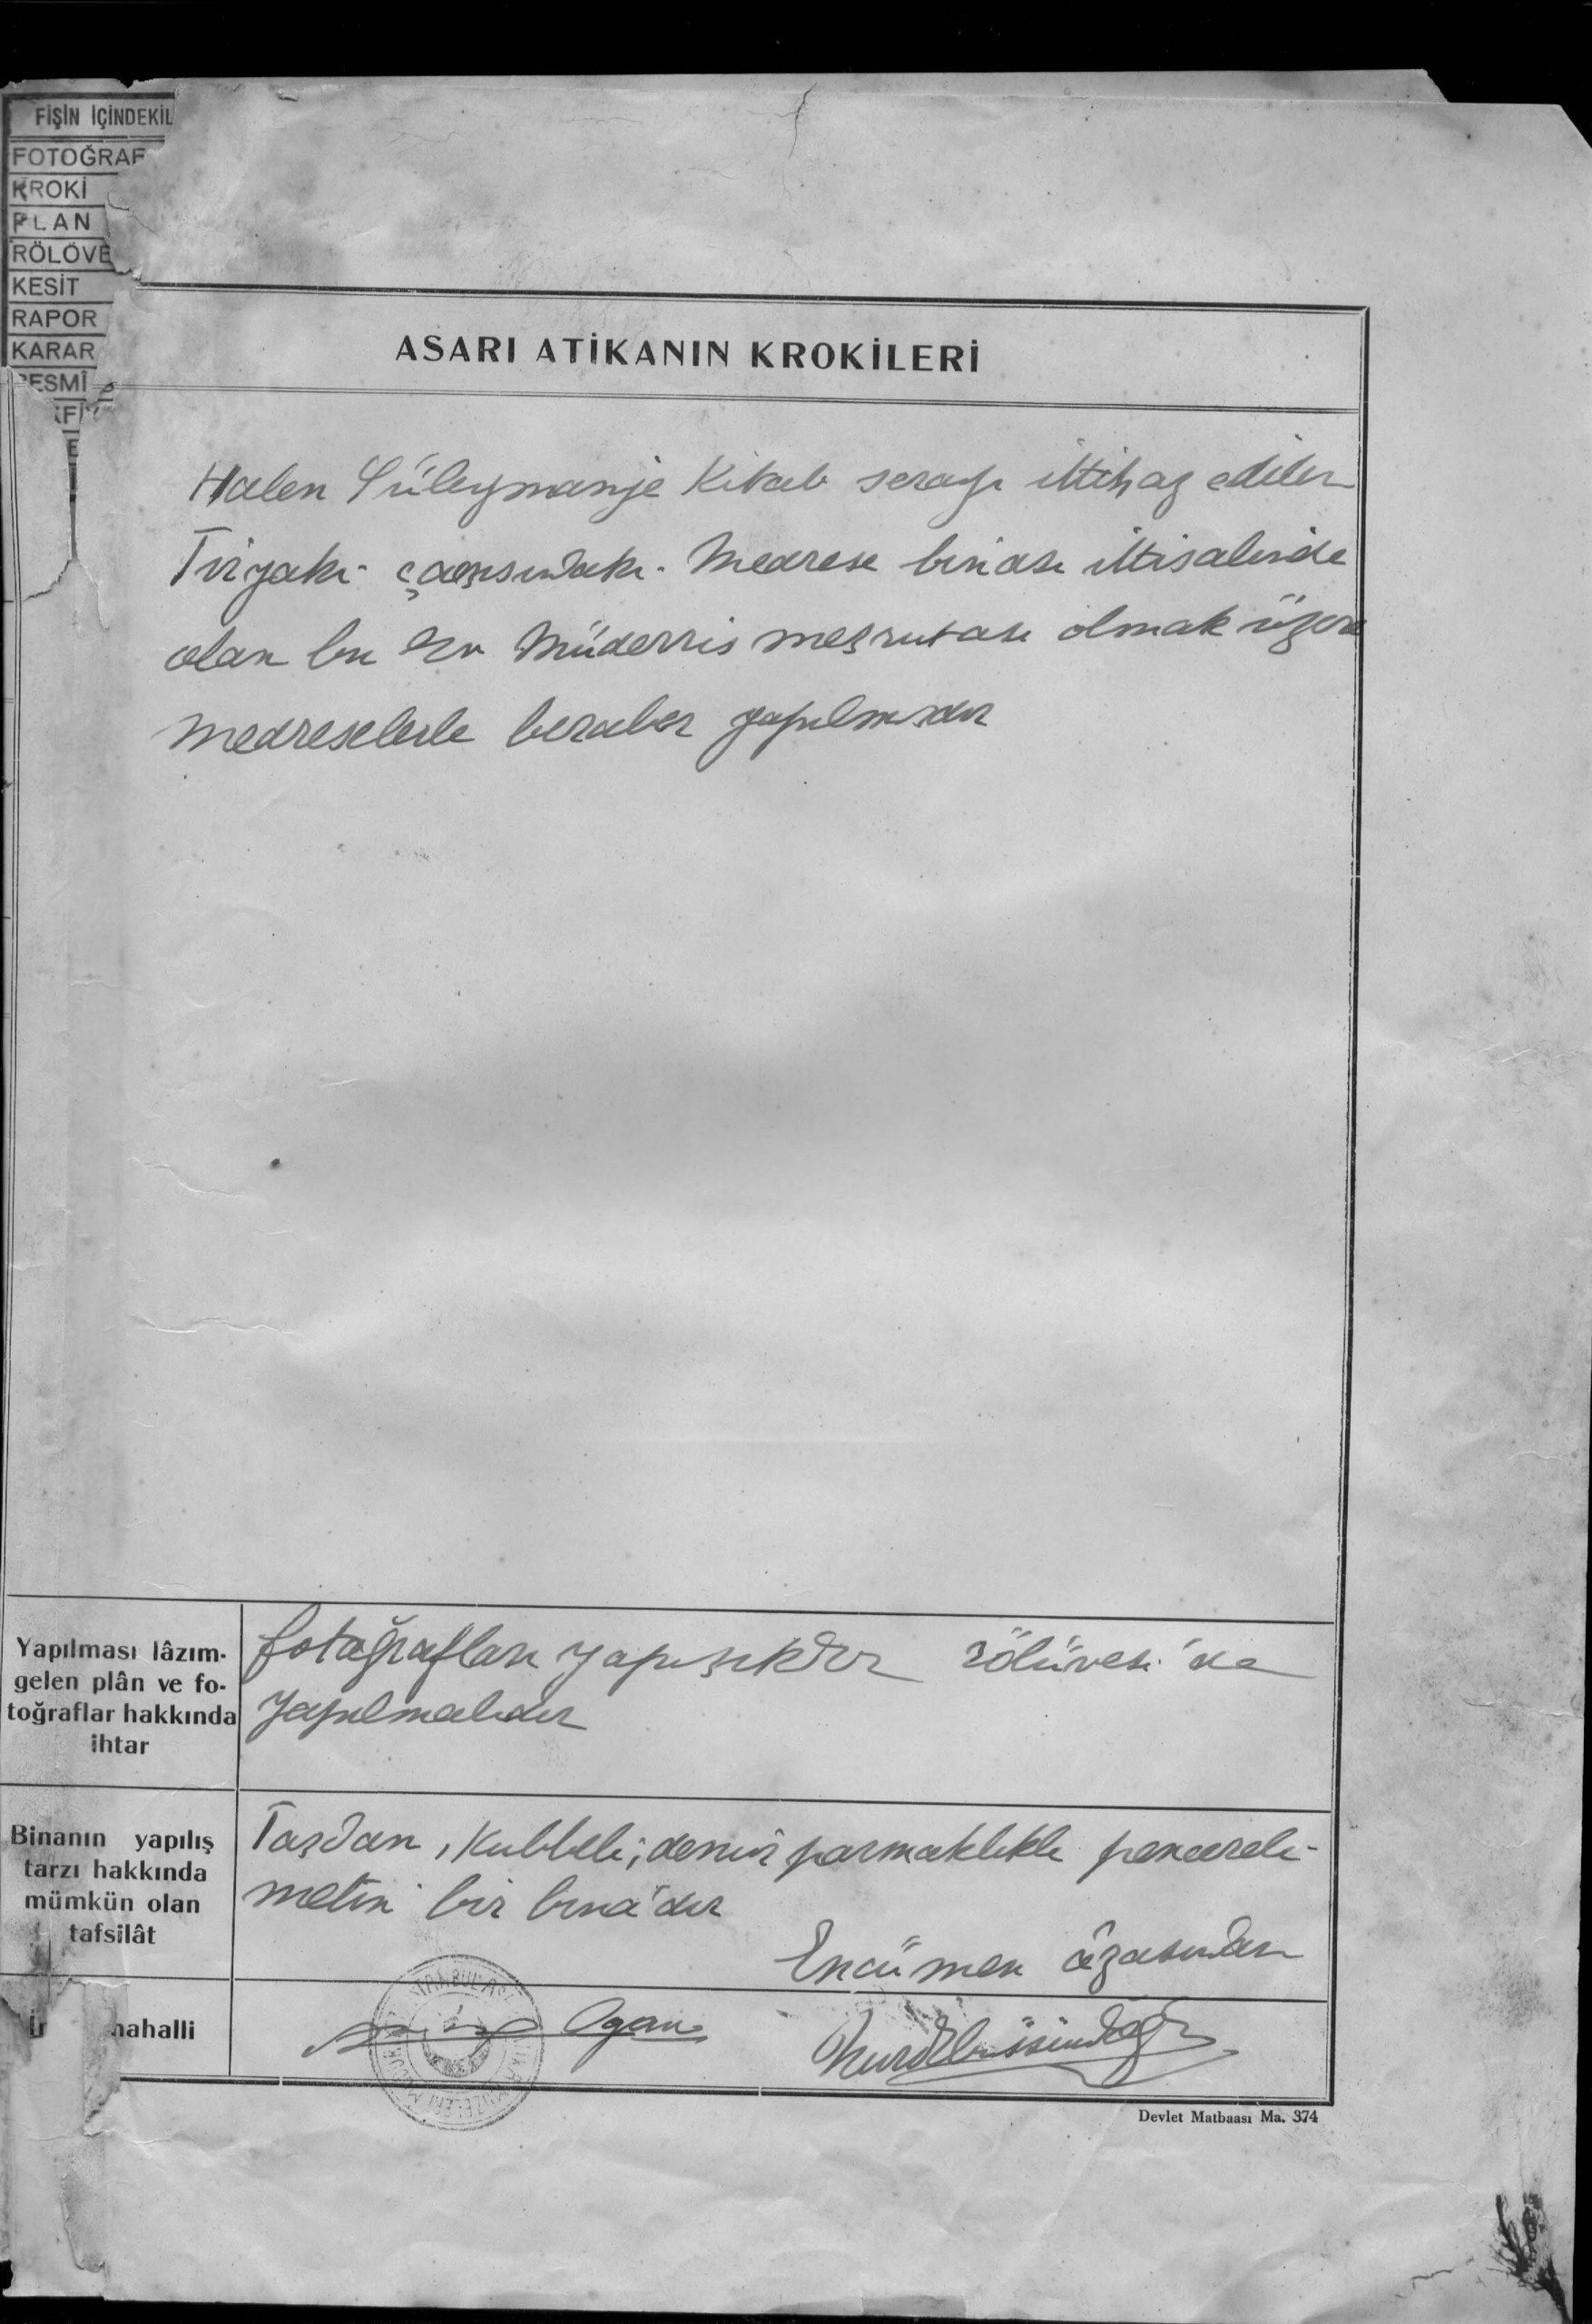 FİŞİN İÇİNDEKİL
FOTOĞRAF
KROKİ
PLAN
RÖLÖVE
KESİT
RAPOR
KARAR
RESMÎ
ASARI ATİKANIN KROKİLERİ
Halen Süleymaniye Kitab sarayı ittihaz edilen
Tiryaki çarşısındaki Medrese binası ittisalinde
olan bu ev Müderris meşrutası olmak üzere
Medreselerle beraber yapılmışdır
Yapılması lâzım-
gelen plân ve fo-
toğraflar hakkında
ihtar
fotoğrafları yapışıkdır rölüvesi de
yapılmalıdır
Binanın yapılış
tarzı hakkında
mümkün olan
tafsilât
Taşdan, Kubbeli, demir parmaklıklı pencereli
metin bir bina'dır
Encümen âzasından
mahalli
Ogan
Devlet Matbaası Ma. 374